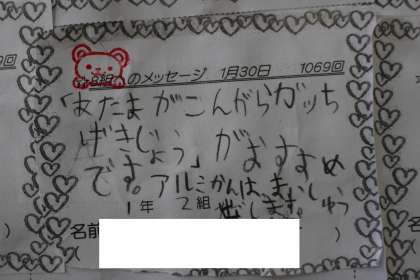 のメッセージ 1月30日 1069回
「あたまがこんがらガッち
げきじょう」がおすすめ
です。アルミかんは、まいしゅう
出します。
1年 2組
名前
( )